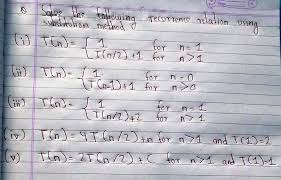 Q Solve the following recurrence relation using
substitution method
(i) T(n) = { 1 for n = 1
T(n/2)+1 for n>1
(ii) T(n) = { 1 for n = 0
T(n-1)+1 for n>0
(iii) T(n) = { 1 for n = 1
T(n/2)+2 for n>1
(iv) T(n) = 4T(n/2)+n for n>1 and T(1)=2
(v) T(n) = 2T(n/2)+C for n>1 and T(1)=1